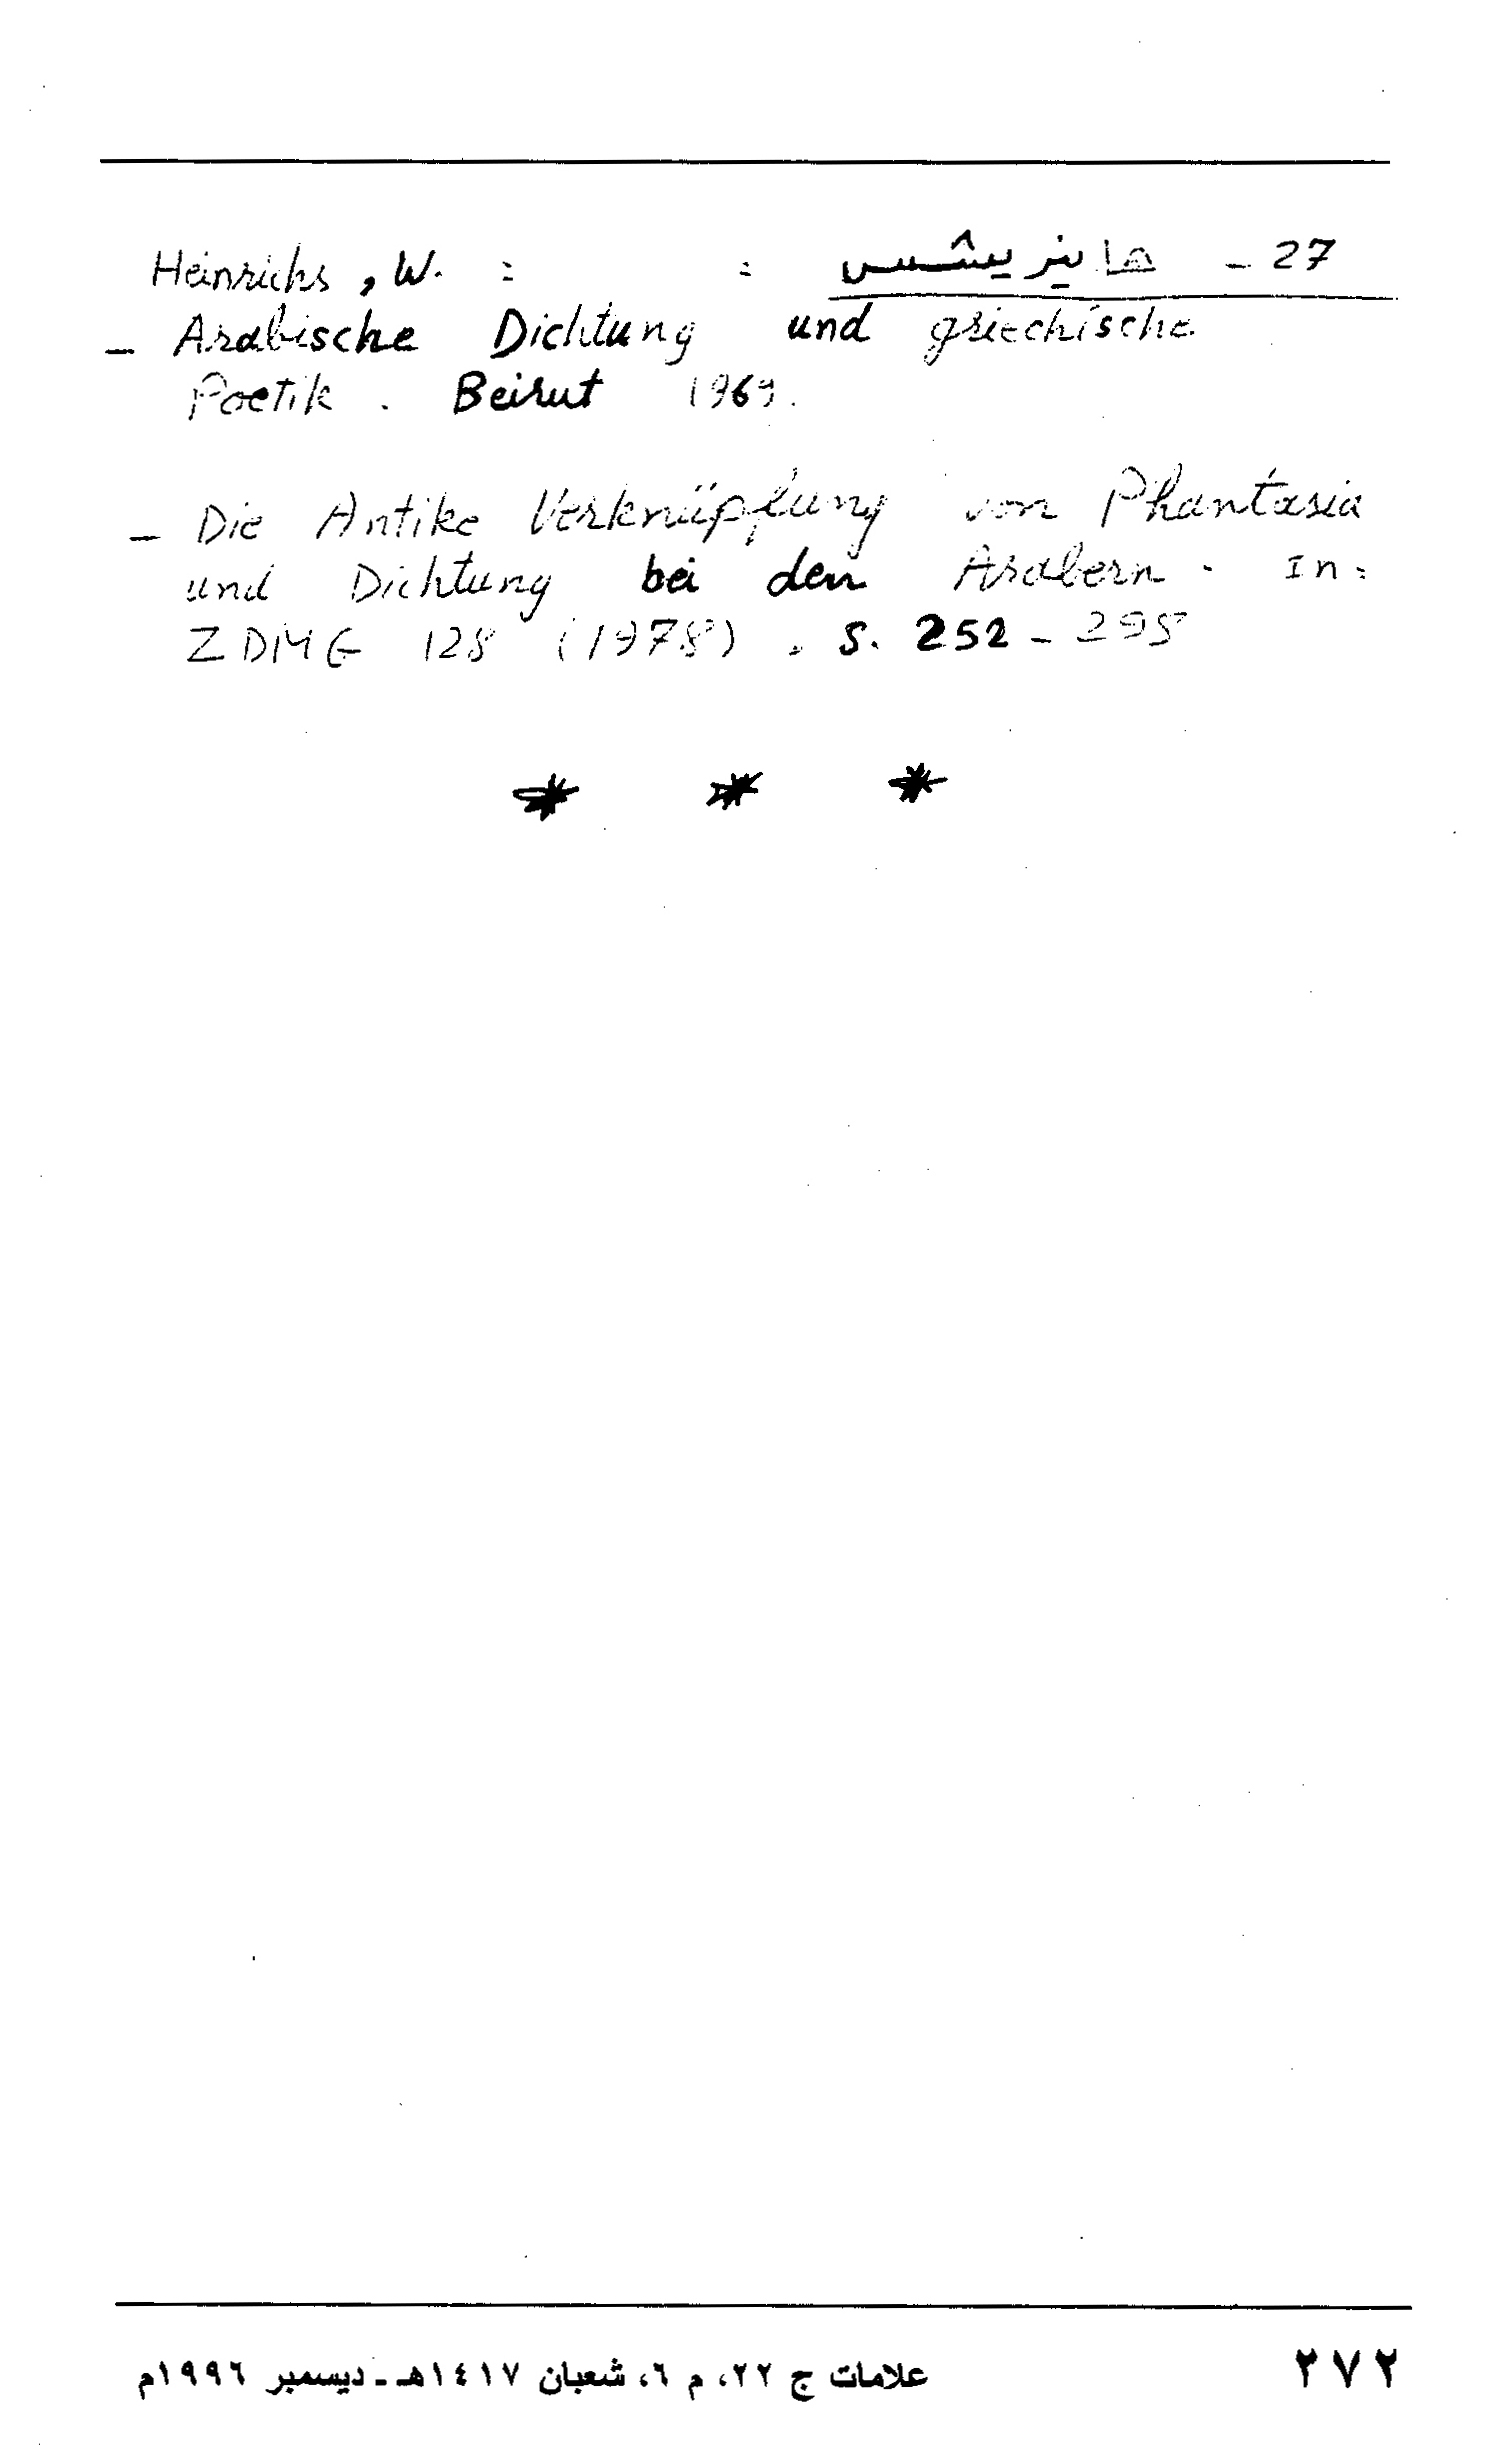 27 - هاينريشس : Heinrichs, W. :
- Arabische Dichtung und griechische
Poetik. Beirut 1969.
- Die Antike Verknüpfung von Phantasia
und Dichtung bei den Arabern. In:
ZDMG 128 (1978), S. 252 - 295
* * *
٢٧٢
علامات ج ٢٢، م ٦، شعبان ١٤١٧هـ - ديسمبر ١٩٩٦م